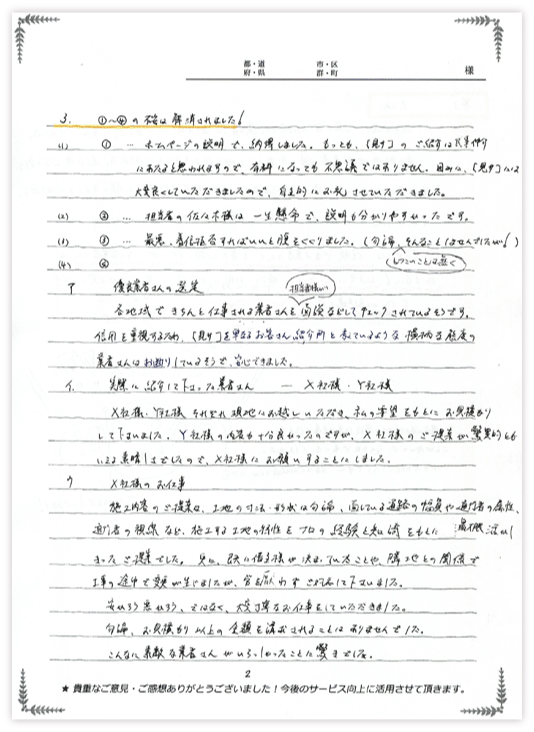 都・道 府・県 市・区 群・町 様
3. ①〜④の不安は解消されました!
(1) ① … ホームページの説明で、納得しました。もっとも、(見サ)のご紹介は代理仲
にあたると思われますので、有料になっても不思議ではありません。因みに、(見サ)には
大変良くしていただきましたので、自主的にお礼させていただきました。
(2) ② … 担当者の佐々木様は一生懸命で、説明も分かりやすかったです。
(3) ③ … 最悪、着信拒否すればいいと腹をくくりました。(勿論、そんなことしませんでしたが!)
(4) ④ しつこいことは無く
ア 優良業者さんの選定
各地域できちんと仕事される業者さんを面談などしてチェックされているそうです。
担当者様が
信用を重視するため、(見サ)を単なるお客さん紹介所と表しているような横柄な態度の
業者さんはお断りしているそうで、安心できました。
イ. 実際に紹介して下さった業者さん — X社様・Y社様
X社様・Y社様それぞれ現地にお越しいただき、私の要望をもとにお見積もり
して下さいました。Y社様の内容も十分良かったのですが、X社様のご提案が驚異的とも
いえる素晴しさでしたので、X社様にお願いすることにしました。
ウ X社様のお仕事
施工内容のご提案は、土地の寸法・形状は勿論、面している道路の幅員や通行者の属性、
通行者の視線など、施工する土地の特性をプロの経験と知識をもとに
かったご提案でした。又、既に借主様が決まっていたことや、隣地との関係で
工事の途中で変更が生じましたが、嫌な顔せず対応して下さいました。
安かろう悪かろう、ではなく、大変丁寧なお仕事をしていただきました。
勿論、お見積もり以上の金額を請求されることはありませんでした。
こんなに素敵な業者さんがいらっしゃったことに驚きでした。
2
★ 貴重なご意見・ご感想ありがとうございました！今後のサービス向上に活用させて頂きます。